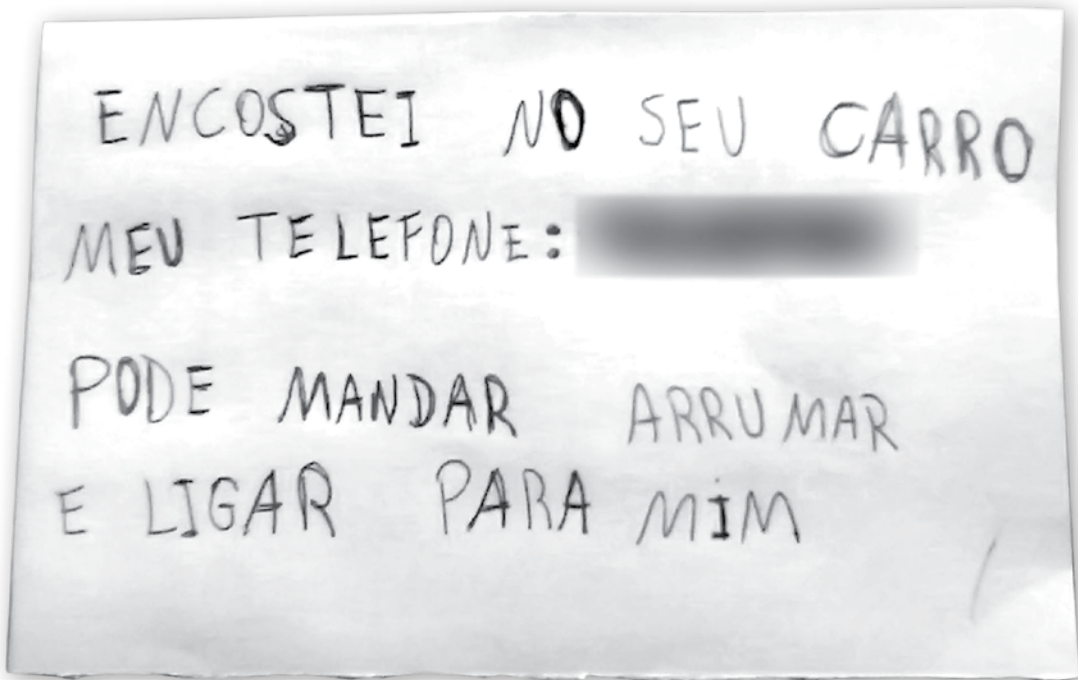 ENCOSTEI NO SEU CARRO
MEU TELEFONE:
PODE MANDAR ARRUMAR
E LIGAR PARA MIM